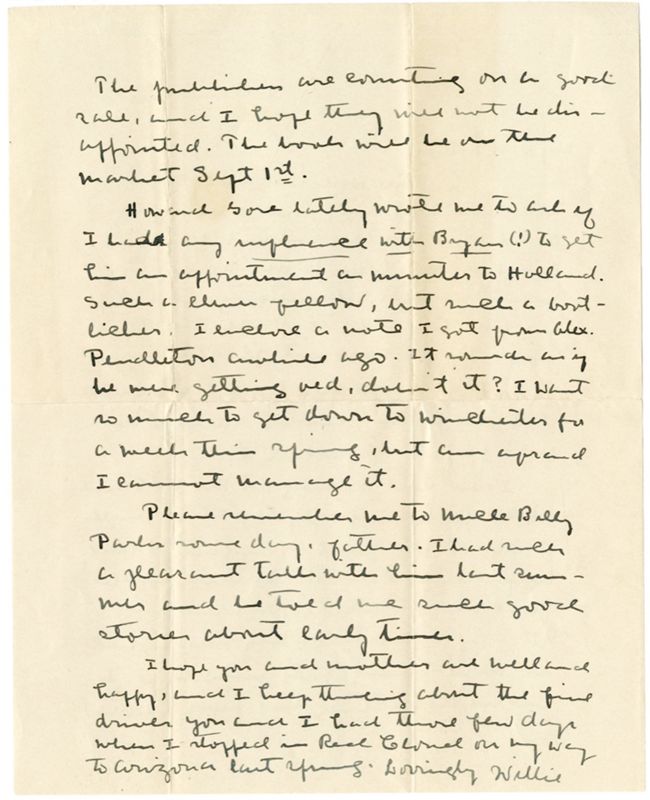 The publishers are counting on a good
sale, and I hope they will not be dis-
appointed. The book will be on the
market Sept 1st.
Howard Gore lately wrote me to ask if
I had any influence with Bryan (!) to get
him an appointment as minister to Holland.
Such a clever fellow, but such a boot-
licker. I enclose a note I got from Alex.
Pendleton awhile ago. It sounds as if
he were getting old, doesn't it? I want
so much to get down to Winchester for
a week this spring, but am afraid
I cannot manage it.
Please remember me to Uncle Billy
Parks some day, father. I had such
a pleasant talk with him last sum-
mer and he told me such good
stories about early times.
I hope you and mother are well and
happy, and I keep thinking about the fine
drives you and I had those few days
when I stopped in Red Cloud on my way
to Arizona last spring. Lovingly Willie